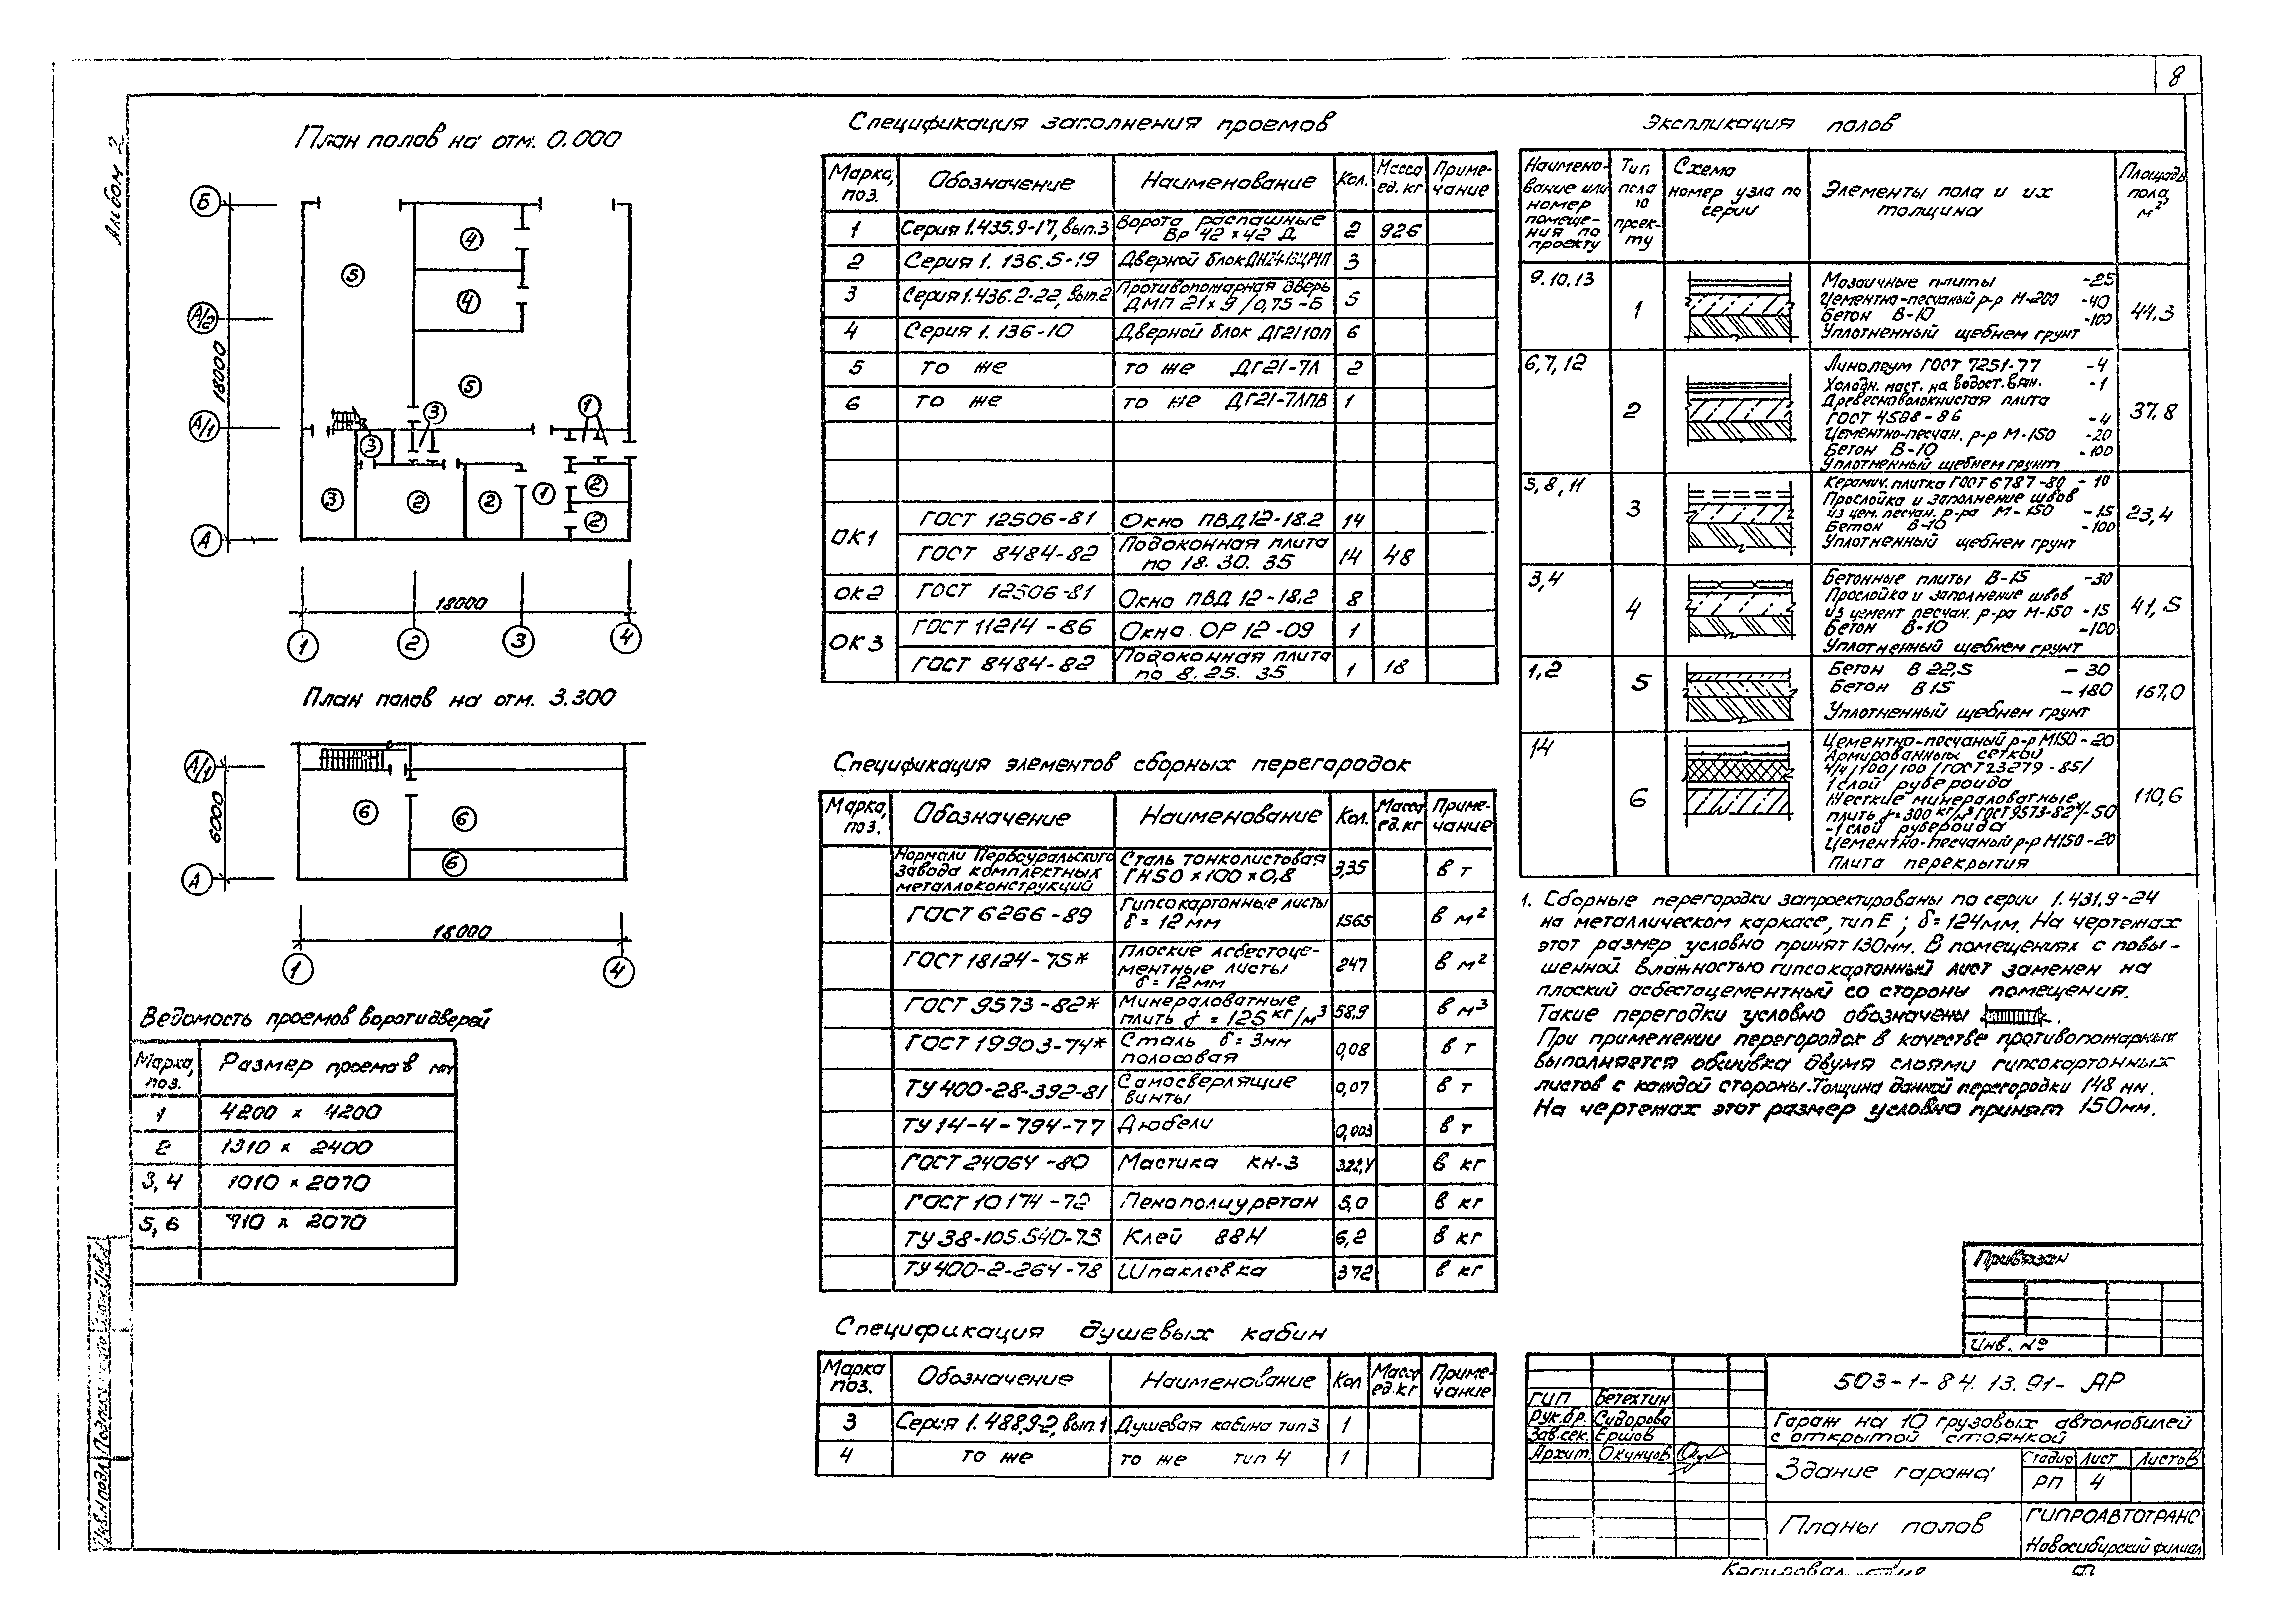 8
Альбом 2
План полов на отм. 0.000
Б
А/2
А/1
А
18000
5
4
4
5
3
1
3
3
2
2
1
2
2
18000
1
2
3
4
План полов на отм. 3.300
А/1
А
6000
6
6
6
18000
1
4
Ведомость проемов ворот и дверей
Марка, поз. Размер проемов мм
1 4200 х 4200
2 1310 х 2400
3, 4 1010 х 2070
5, 6 910 х 2070
Спецификация заполнения проемов
Марка, поз. Обозначение Наименование Кол. Масса ед. кг Примечание
1 Серия 1.435.9-17, вып.3 Ворота распашные Вр 42 х 42 Д 2 926
2 Серия 1. 136.5-19 Дверной блок 3
3 Серия 1.436.2-22, вып.2 Противопожарная дверь ДМП 21х9/0,75-Б 5
4 Серия 1. 136-10 Дверной блок ДГ21 10П 6
5 то же то же ДГ21-7Л 2
6 то же то же ДГ21-7ЛПВ 1
ОК1 ГОСТ 12506-81 Окно ПВД12-18.2 14
ГОСТ 8484-82 Подоконная плита по 18. 30. 35 14 48
ОК2 ГОСТ 12506-81 Окно ПВД 12-18.2 8
ОК3 ГОСТ 11214-86 Окно ОР 12-09 1
ГОСТ 8484-82 Подоконная плита по 8. 25. 35 1 18
Спецификация элементов сборных перегородок
Марка, поз. Обозначение Наименование Кол. Масса ед. кг Примечание
Нормали Первоуральского завода комплектных металлоконструкций Сталь тонколистовая ГН50х100х0,8 3,35 в т
ГОСТ 6266-89 Гипсокартонные листы δ= 12мм 1565 в м²
ГОСТ 18124-75* Плоские асбестоцементные листы δ= 12мм 247 в м²
ГОСТ 9573-82* Минераловатные плиты γ = 125 кг/м³ 58,9 в м³
ГОСТ 19903-74* Сталь δ= 3мм полосовая 0,08 в т
ТУ 400-28-392-81 Самосверлящие винты 0,07 в т
ТУ 14-4-794-77 Дюбели 0,003 в т
ГОСТ 24064-80 Мастика КН-3 322,4 в кг
ГОСТ 10174-72 Пенополиуретан 5,0 в кг
ТУ 38-105.540-73 Клей 88Н 6,2 в кг
ТУ 400-2-264-78 Шпаклевка 372 в кг
Спецификация душевых кабин
Марка поз. Обозначение Наименование Кол Масса ед.кг Примечание
3 Серия 1.488.9-2, вып.1 Душевая кабина тип 3 1
4 то же то же тип 4 1
Экспликация полов
Наименование или номер помещения по проекту Тип пола по проекту Схема номер узла по серии Элементы пола и их толщина Площадь пола, м²
9. 10. 13 1 44,3
Мозаичные плиты -25
Цементно-песчаный р-р М-200 -40
Бетон В-10 -100
Уплотненный щебнем грунт
6, 7, 12 2 37,8
Линолеум ГОСТ 7251-77 -4
Холодн. маст. на водост. вяж. -1
Древесноволокнистая плита
ГОСТ 4598-86 -4
Цементно-песчан. р-р М-150 -20
Бетон В-10 -100
Уплотненный щебнем грунт
5, 8, 11 3 23,4
Керамич. плитка ГОСТ 6787-80 -10
Прослойка и заполнение швов
из цем. песчан. р-ра М-150 -15
Бетон В-10 -100
Уплотненный щебнем грунт
3, 4 4 41,5
Бетонные плиты В-15 -30
Прослойка и заполнение швов
из цемент песчан. р-ра М-150 -15
Бетон В-10 -100
Уплотненный щебнем грунт
1, 2 5 167,0
Бетон В 22,5 -30
Бетон В 15 -180
Уплотненный щебнем грунт
14 6 110,6
Цементно-песчаный р-р М150 -20
Армированных сеткой
4/4/100/100/ГОСТ23279-85/
1 слой рубероида
Жесткие минераловатные
плиты γ=300 кг/м³ ГОСТ 9573-82*/-50
-1 слой рубероида
Цементно-песчаный р-р М150 -20
плита перекрытия
1. Сборные перегородки запроектированы по серии 1.431.9-24
на металлическом каркасе, тип Е; δ=124мм. На чертежах
этот размер условно принят 130мм. В помещениях с повы-
шенной влажностью гипсокартонный лист заменен на
плоский асбестоцементный со стороны помещения.
Такие перегодки условно обозначены
При применении перегородок в качестве противопожарных
выполняется обшивка двумя слоями гипсокартонных
листов с каждой стороны. Толщина данной перегородки 148 мм.
На чертежах этот размер условно принят 150мм.
Привязан
Инв. №
503-1-84. 13. 91- АР
ГИП Бетехтин
Рук.бр. Сидорова
Зав.сек. Ершов
Архит. Окунцов
Гараж на 10 грузовых автомобилей
с открытой стоянкой
Здание гаража
Стадия Лист Листов
РП 4
Планы полов
ГИПРОАВТОТРАНС
Новосибирский филиал
Копировал
Инв.Н подл.